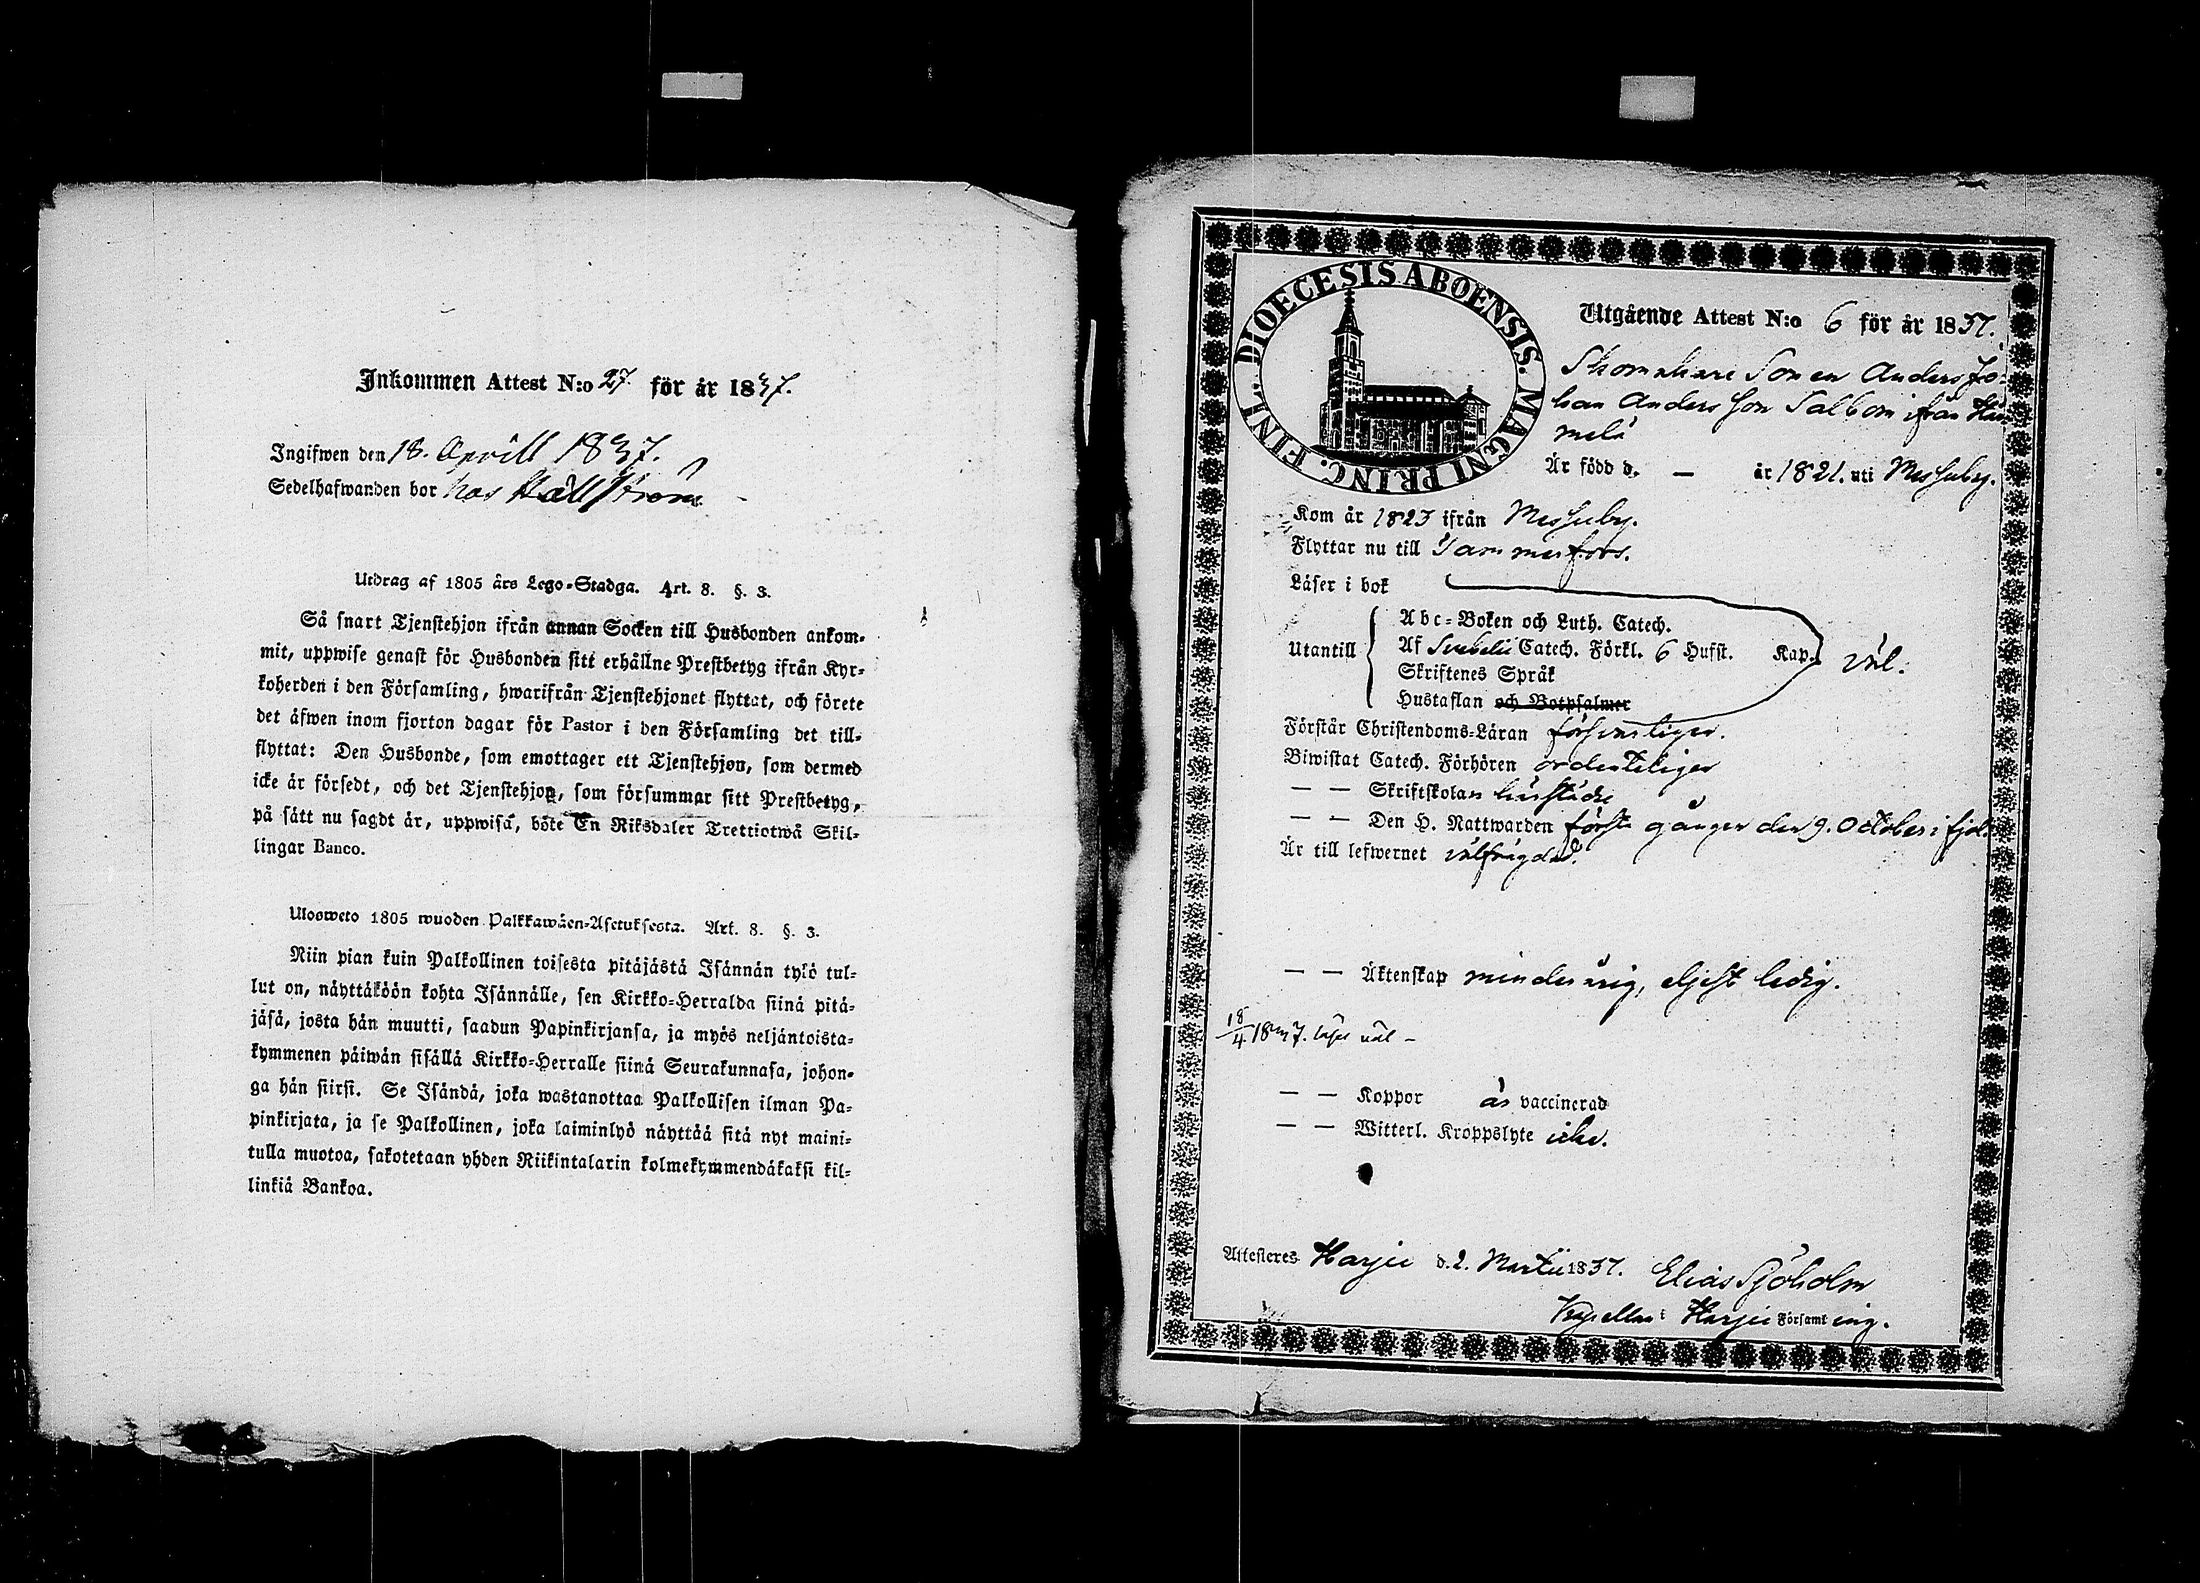 Inkommen Attest N:o 27 för år 1837.
Ingifwen den 18. Aprill 1837.
Sedelhafwanden bor hos Hällström
Utdrag af 1805 års Lego-Stadga. Art. 8. §. 3.
Så snart Tjenstehjon ifrån annan Socken till Husbonden ankom-
mit, uppwise genast för Husbonden sitt erhållne Prestbetyg ifrån Kyr-
koherden i den Församling, hwarifrån Tjenstehjonet flyttat, och förete
det äfwen inom fjorton dagar för Pastor i den Församling det till-
flyttat: Den Husbonde, som emottager ett Tjenstehjon, som dermed
icke är försedt, och det Tjenstehjon, som försummar sitt Prestbetyg,
på sätt nu sagdt är, uppwisa, böte En Riksdaler Trettiotwå Skil-
lingar Banco.
Ulosweto 1805 wuoden Palkkawäen-Asetuksesta. Art. 8. §. 3.
Niin pian kuin Palkollinen toisesta pitäjästä Isännän tykö tul-
lut on, näyttäköön kohta Isännälle, sen Kirkko-Herralda siinä pitä-
jäsä, josta hän muutti, saadun Papinkirjansa, ja myös neljäntoista-
kymmenen päiwän sisällä Kirkko-Herralle siinä Seurakunnasa, johon-
ga hän siirsi. Se Isändä, joka wastanottaa Palkollisen ilman Pa-
pinkirjata, ja se Palkollinen, joka laiminlyö näyttää sitä nyt maini-
tulla muotoa, sakotetaan yhden Riikintalarin kolmekymmendäkaksi kil-
linkiä Bankoa.
DIOECESIS ABOENSIS. MAGNI PRINC. FINL.
Utgående Attest N:o 6 för år 1837.
Skomakare Sonen Anders Jo-
han Andersson Salbom ifrån
melä
Är född d. — år 1821. uti Messuby.
Kom år 1823 ifrån Messuby.
Flyttar nu till Tammerfors.
Läser i bok
Abc-Boken och Luth. Catech.
Utantill Af Svebelii Catech. Förkl. 6 Hufst. Kap. väl.
Skriftenes Språk
Hustaflan och Botpsalmer
Förstår Christendoms-Läran försvarligen.
Biwistat Catech. Förhören ordenteligen
— — Skriftskolan härstädes
— — Den H. Nattwarden första gången den 9. October i fjol.
Är till lefwernet välfrägdad.
— — Äktenskap minderårig, eljest ledig.
18/4 1837. läser väl –
— — Koppor är vaccinerad
— — Witterl. Kroppslyte icke.
Attesteres Harju d. 2. Martii 1837. Elias Sjöholm
Kapellan i Harju Församling.